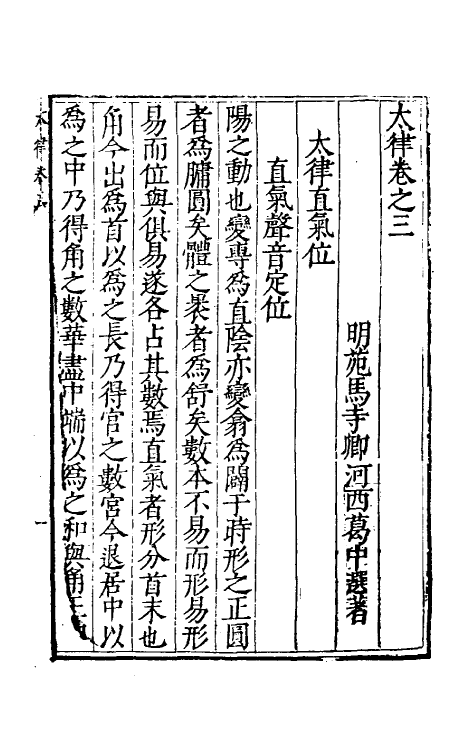 太律卷之三
明苑馬寺卿河西葛中選著
太律直氣位
直氣聲音定位
陽之動也變專為直陰亦變翕為闢于時形之正圓
者為牗圓矣體之褁者為舒矣數本不易而形易形
易而位與俱易遂各占其數焉直氣者形分首末也
角今出為首以為之長乃得官之數宮今退居中以
為之中乃得角之數華盡中端以為之和與角
太律卷三
一